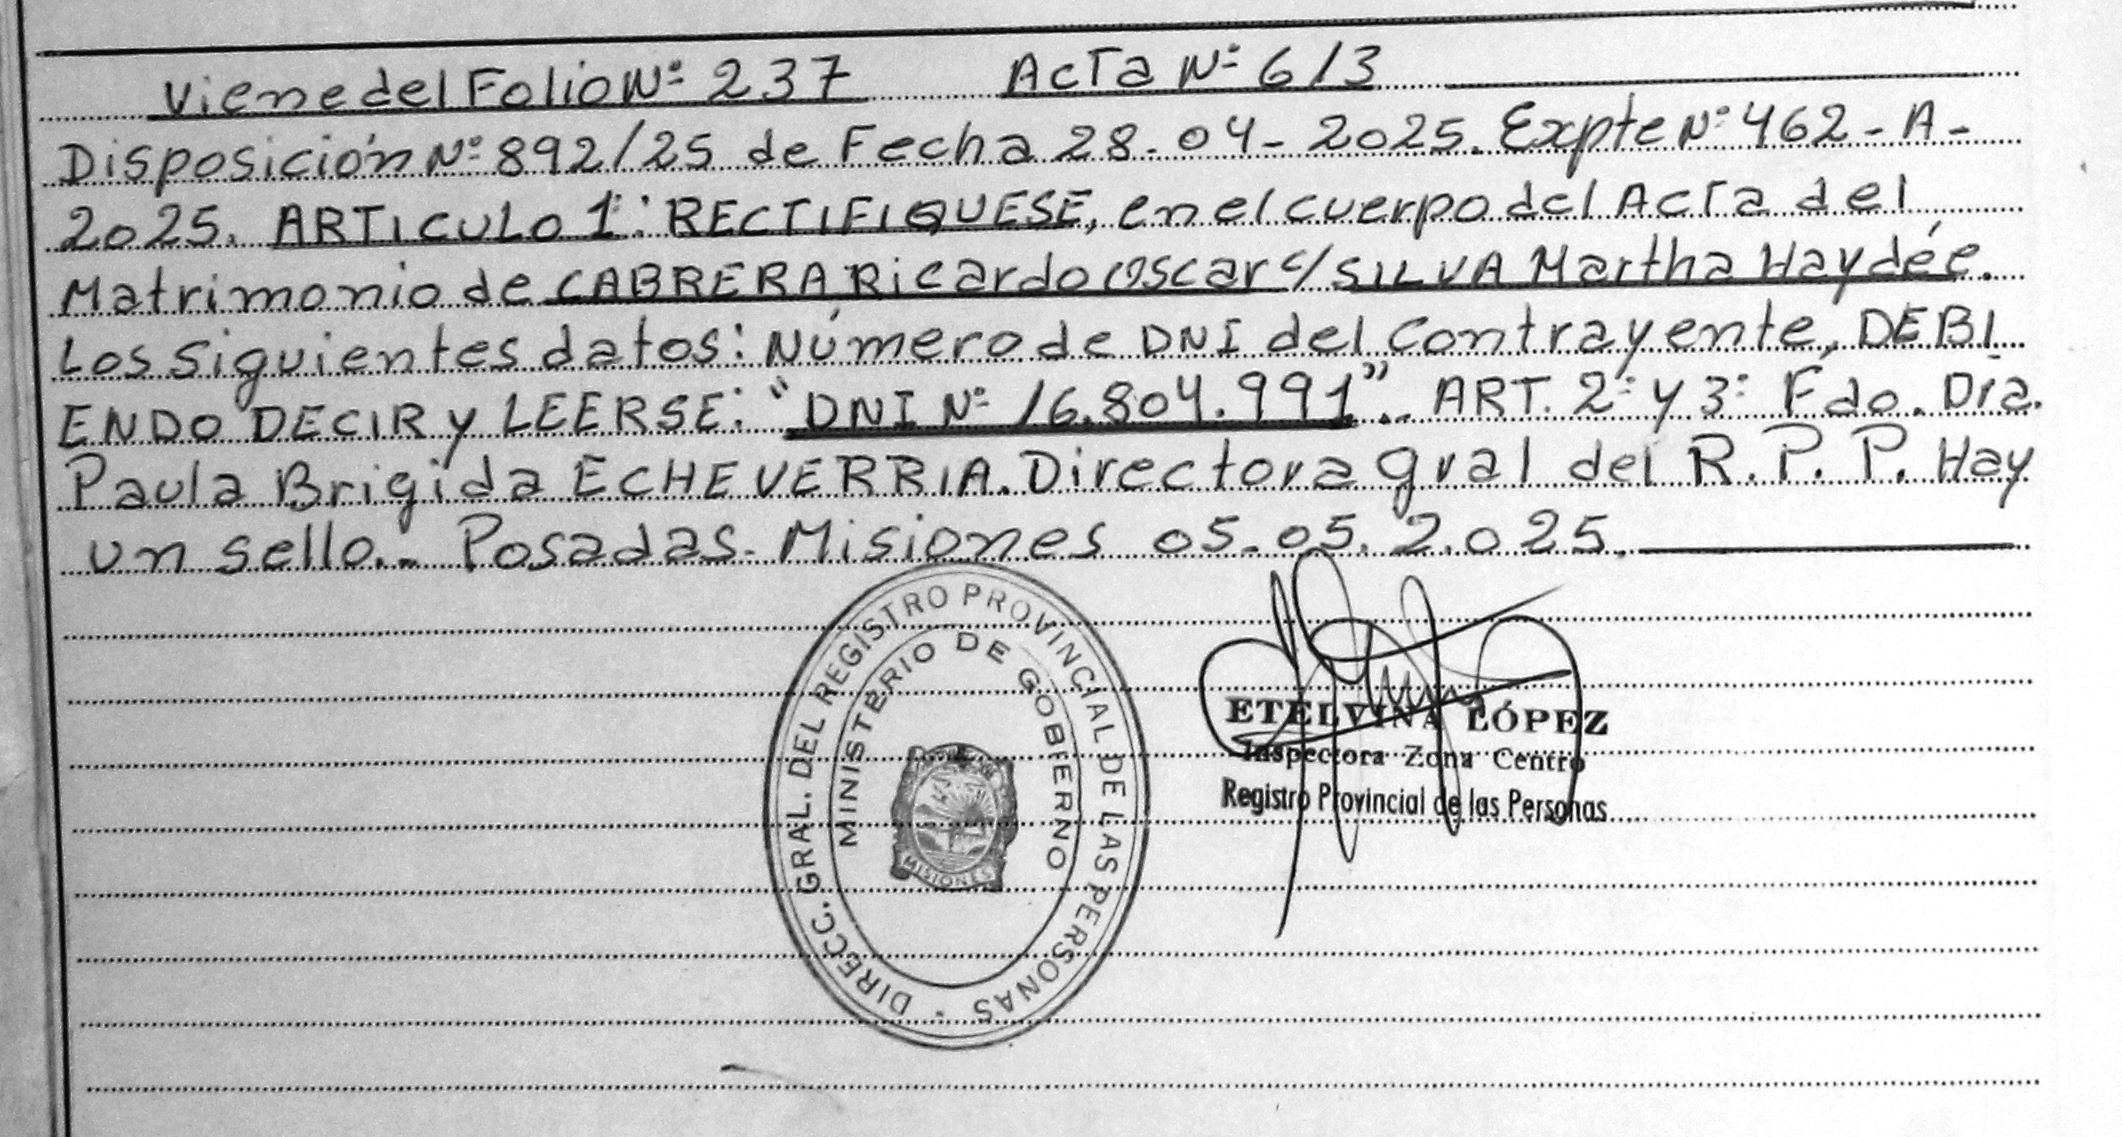 Viene del Folio Nº 237 Acta Nº 613
Disposición Nº 892/25 de Fecha 28-04-2025. Expte Nº 462-A-
2025. ARTICULO 1º: RECTIFIQUESE, en el cuerpo del Acta del
Matrimonio de CABRERA Ricardo Oscar c/ SILVA Martha Haydée.
Los siguientes datos: Número de DNI del Contrayente, DEBI
ENDO DECIR y LEERSE: "DNI Nº 16.804.991".- ART. 2º y 3º Fdo. Dra.
Paula Brigida ECHEVERRIA. Directora gral del R.P.P. Hay
un sello.- Posadas- Misiones 05.05.2.025.
DIRECC. GRAL. DEL REGISTRO PROVINCIAL DE LAS PERSONAS
MINISTERIO DE GOBIERNO
MISIONES
ETELVINA LÓPEZ
Inspectora Zona Centro
Registro Provincial de las Personas